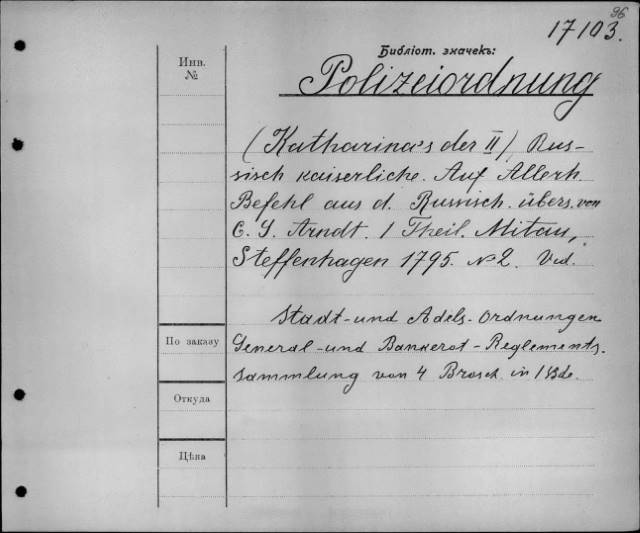 96
17103.
Библіот. значекъ:
Polizeiordnung
Инв.
№
(Katharina's der II) Rus-
sisch kaiserliche. Auf Allerh.
Befehl aus d. Russisch. übers. von
C. G. Arndt. 1 Theil. Mitau,
Steffenhagen 1795. №2. Vid.
Stadt- und Adels-Ordnungen
По заказу
General- und Bankerot-Reglements,
sammlung von 4 Brosch. in 1 Bde.
Откуда
Цѣна